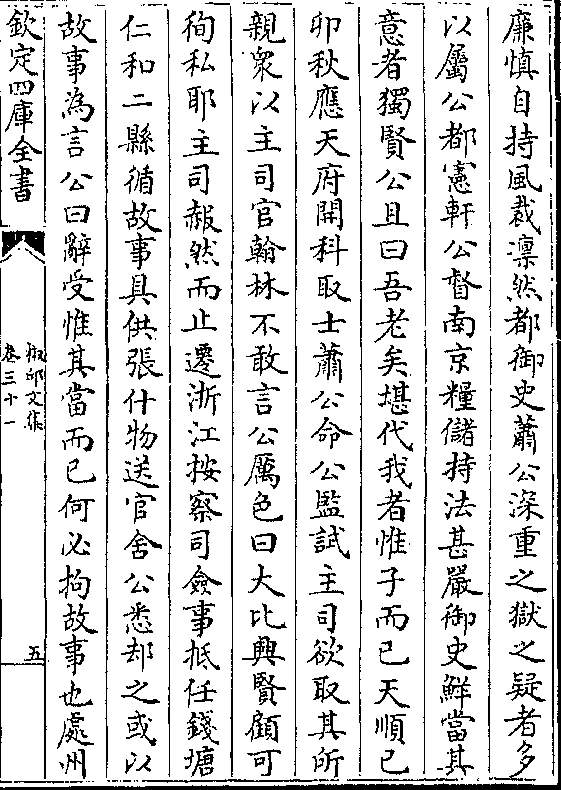 廉慎自持風裁凛然都御史蕭公深重之獄之疑者多
以屬公都憲軒公督南京糧儲持法甚嚴御史鮮當其
意者獨賢公且曰吾老矣堪代我者惟子而已天順已
卯秋應天府開科取士蕭公命公監試主司欲取其所
親衆以主司官翰林不敢言公厲色曰大比興賢顧可
徇私耶主司赧然而止遷浙江按察司僉事抵任錢塘
仁和二縣循故事具供張什物送官舍公悉却之或以
故事為言公曰辭受惟其當而已何必拘故事也處州
欽定四庫全書
椒邱文集
卷三十一
五